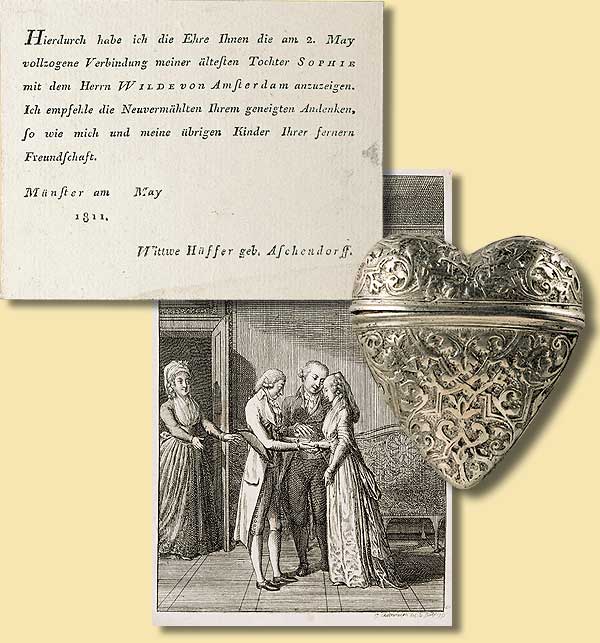 Hierdurch habe ich die Ehre Ihnen die am 2. May
vollzogene Verbindung meiner älteſten Tochter SOPHIE
mit dem Herrn WILDE von Amſterdam anzuzeigen.
Ich empfehle die Neuvermählten Ihrem geneigten Andenken,
ſo wie mich und meine übrigen Kinder Ihrer fernern
Freundſchaft.
Münſter am May
1811.
Wittwe Hüffer geb. Aſchendorff.